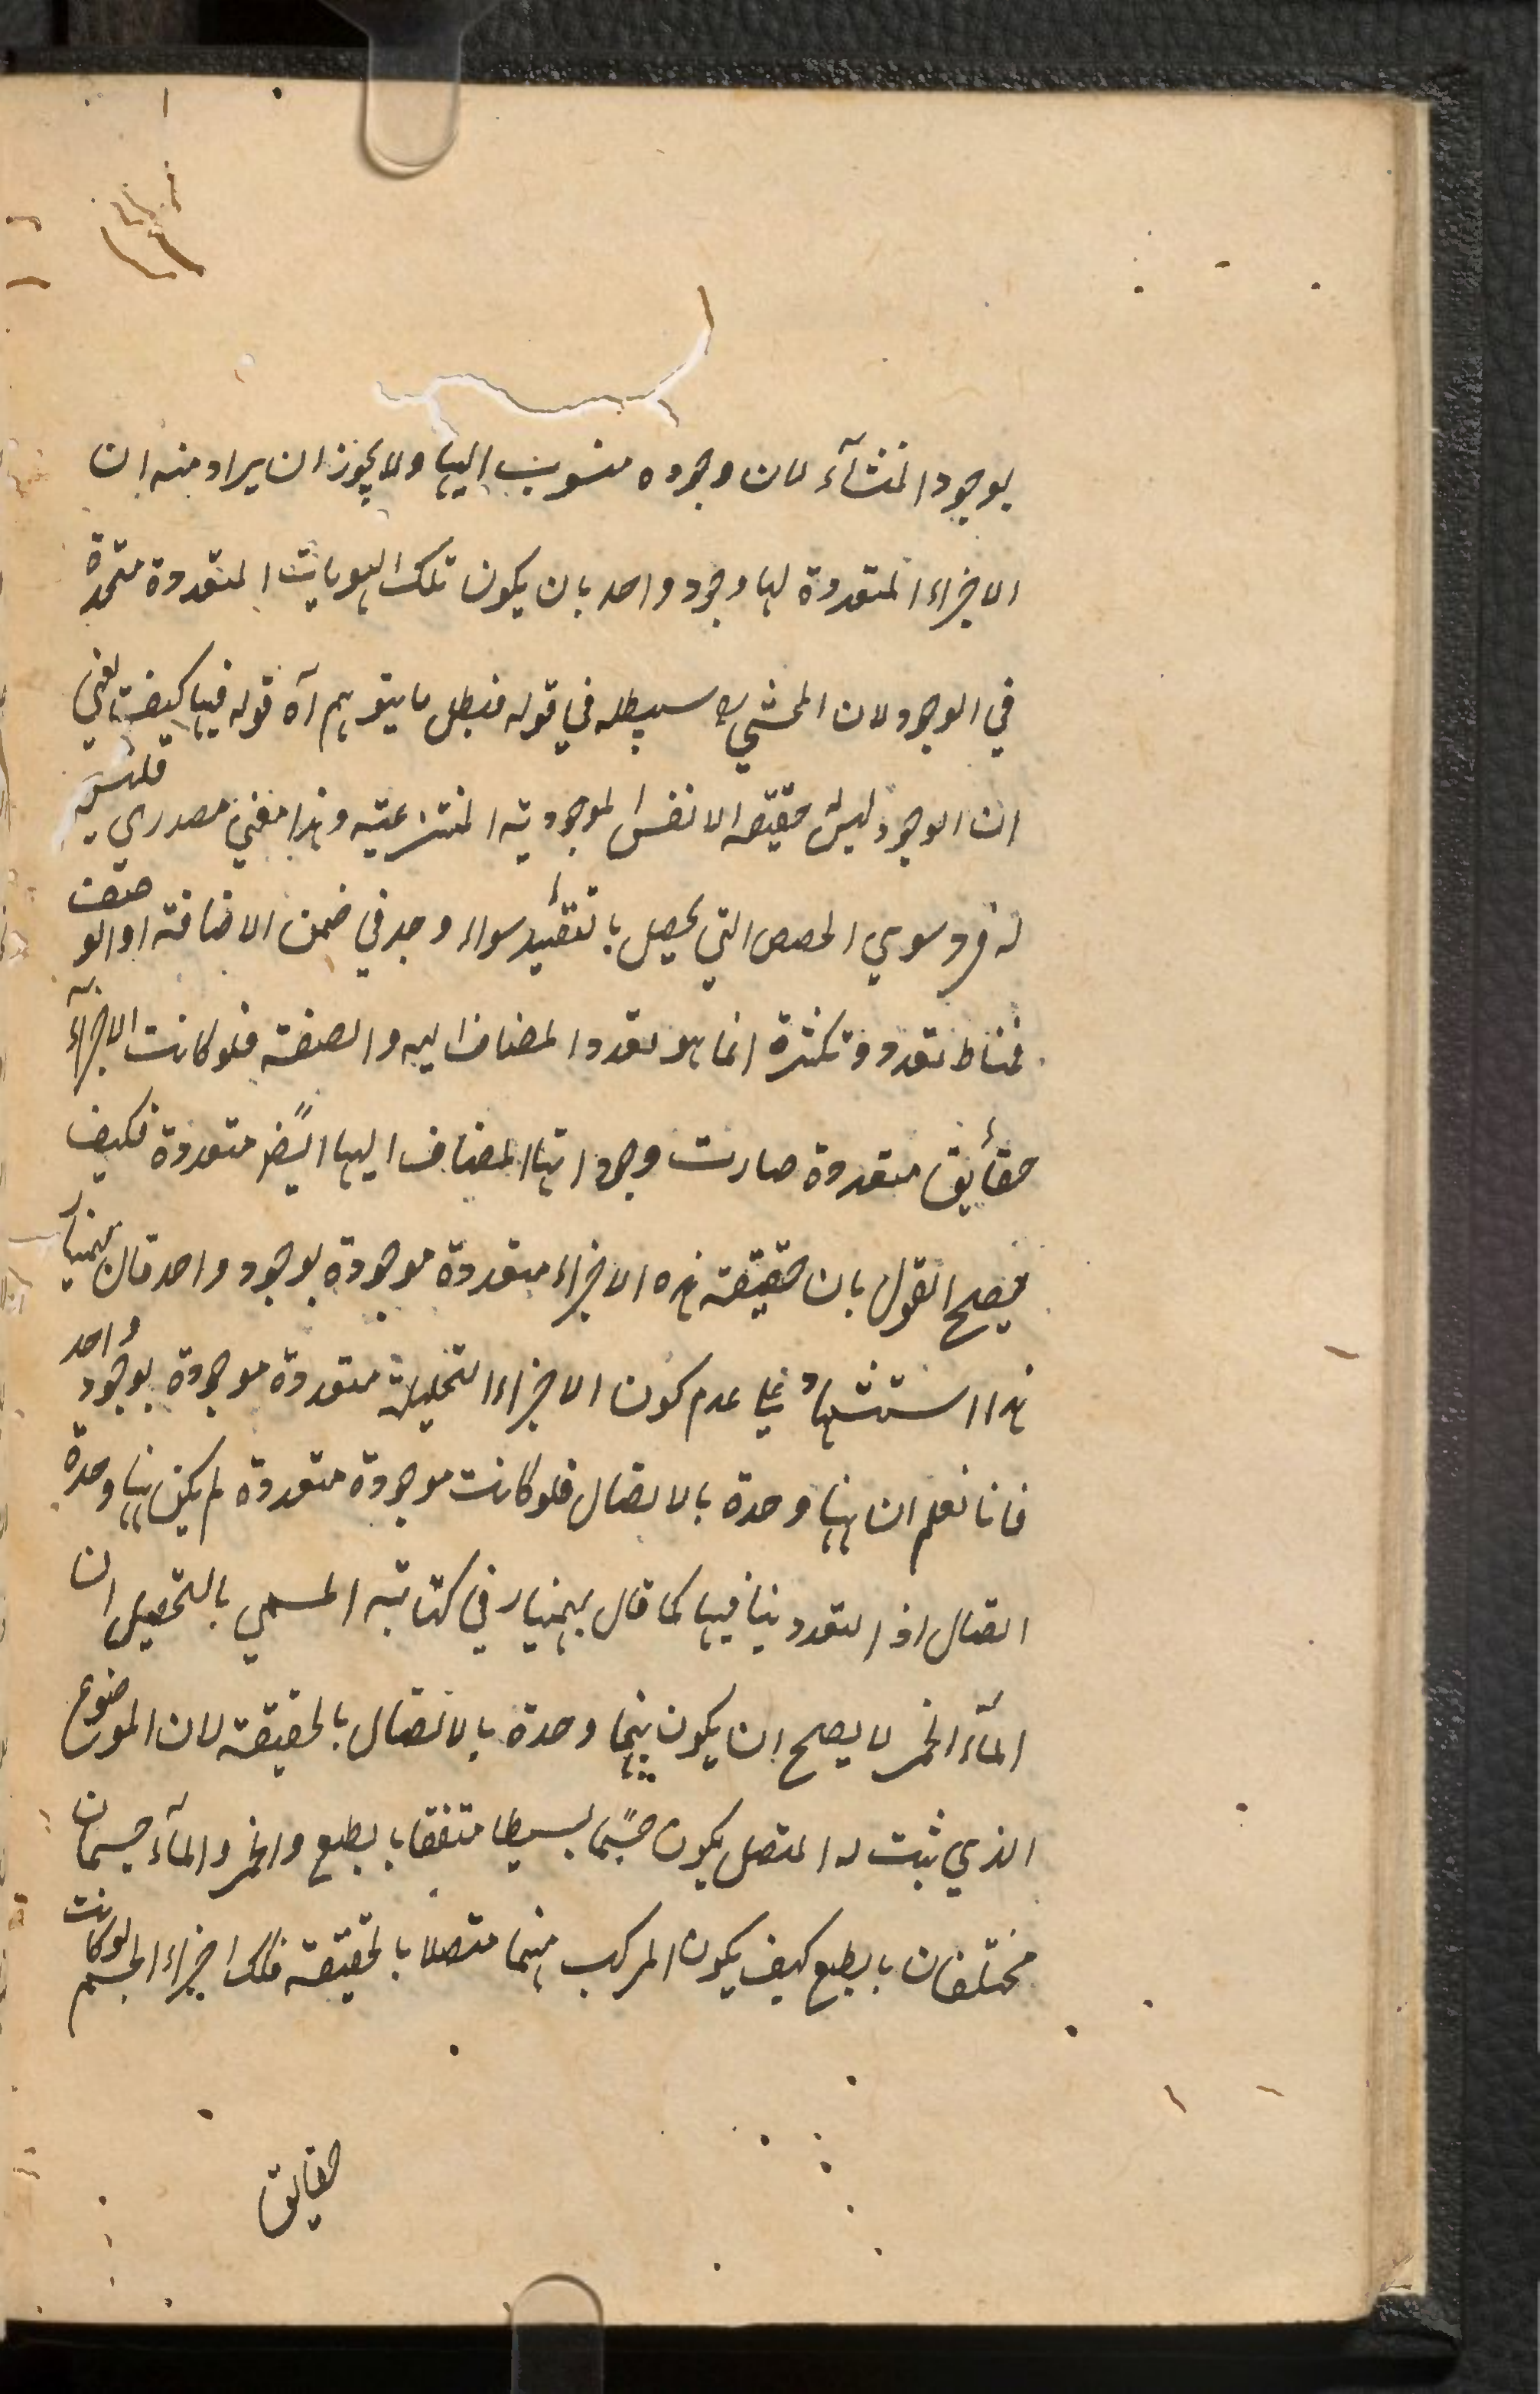 بوجود المنشآء لان وجوده منسوب اليها ولا يجوز ان يراد منه ان
الاجزاء المتعددة لها وجود واحد بان يكون تلك الهويات المتعددة متحدة
في الوجود لان المحشي سيبطله في قوله فبطل ما يتوهم آه قوله فيها كيف يعني
ان الوجود ليس حقيقه الا نفس الموجودية المنتزعية وهذا معني مصدري فليس
له فرد سوي الحصص التي يحصل بالتقئيد سواء وجد في ضمن الاضافة او الوصف
فمناط تعدده وتكثره انما هو تعدد المضاف اليه والصفة فلو كانت الاجزآء
حقأيق متعددة صارت وجوداتها المضاف اليها ايضًا متعددة فكيف
يصلح القول بان حقيقة هذه الاجزاء متعددة موجودة بوجود واحد قال بهمنيار
هذا استشهاد علي عدم كون الاجزاء التحليلية متعددة موجودة بوجود واحد
فانا نعلم ان ههنا وحدة بالاتصال فلو كانت موجودة متعددة لم يكن ههنا وحدة
اتصال اذ التعدد ينافيها كما قال بهمنيار في كتابه المسمي بالتحصيل ان
المآء الخمر لا يصلح ان يكون بينهما وحدة بالاتصال بالحقيقة لان الموضوع
الذي ثبت له المتصل يكون جسمًا بسيطا متفقا بالطبع والخمر والمآء جسمان
مختلفان بالطبع كيف يكون المركب منهما متصلا بالحقيقة فلك اجزاء الجسم لو كانت
حقايق